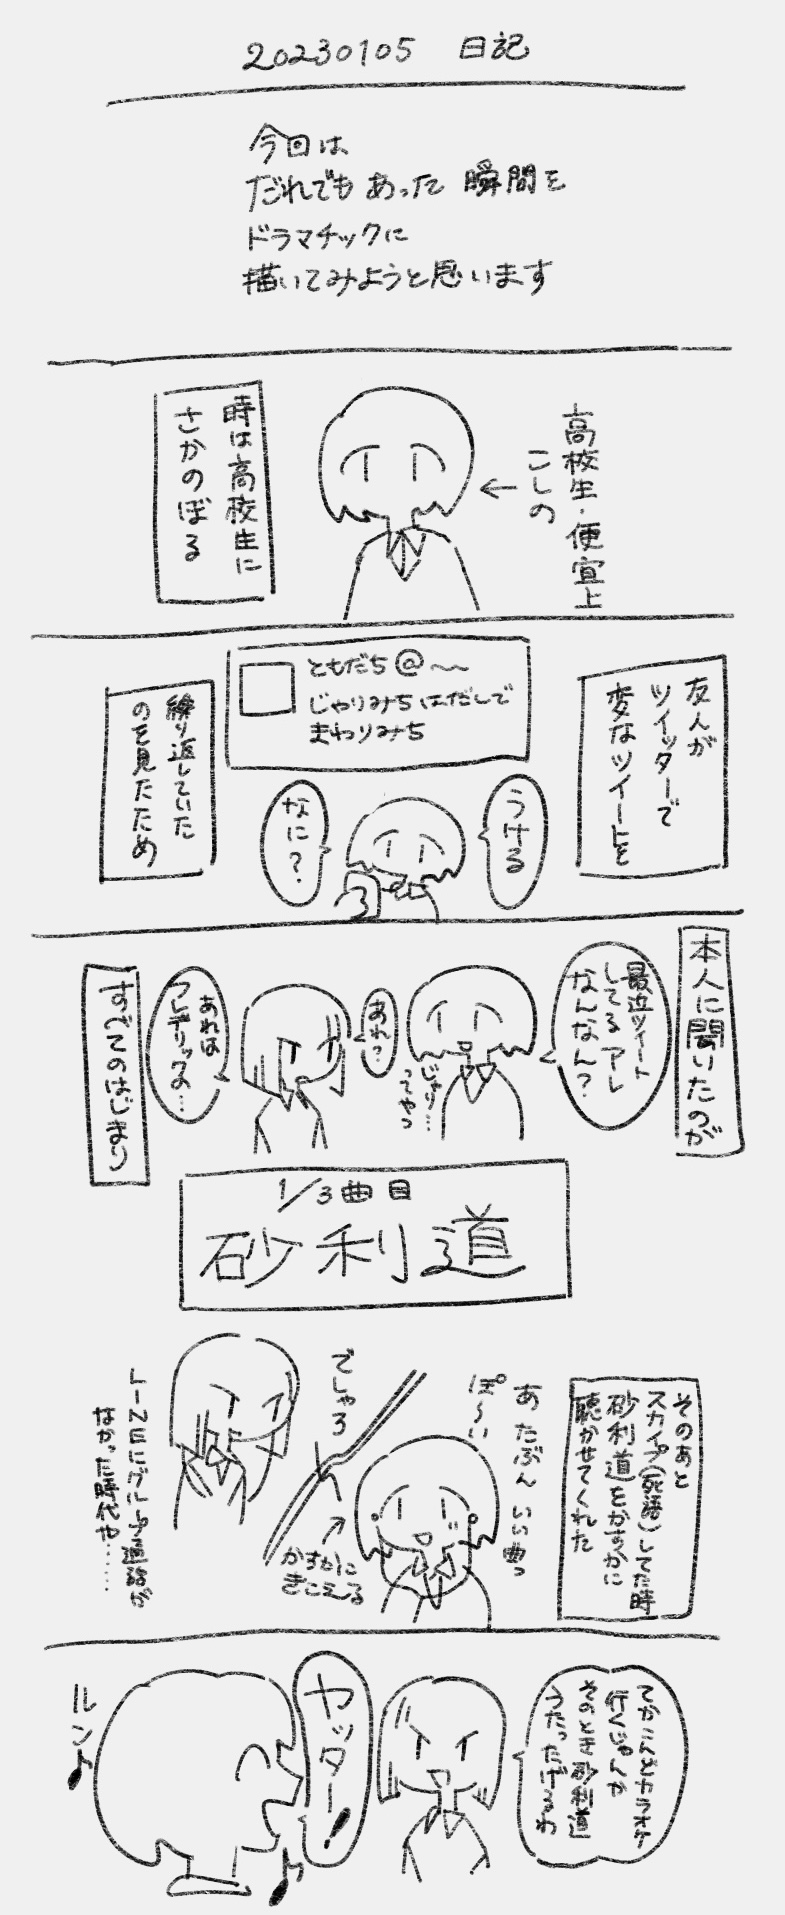 20230105 日記
今回は
だれでもあった瞬間を
ドラマチックに
描いてみようと思います
高校生・便宜上
こしの
時は高校生に
さかのぼる
友人が
ツイッターで
変なツイートを
ともだち@~~
じゃりみちはだしで
まわりみち
繰り返していた
のを見たため
うける
なに?
本人に聞いたのが
最近ツイート
してるアレ
なんなん?
じゃり…
ってやつ
あれ?
あれは
フレデリックの…
すべてのはじまり
1/3曲目
砂利道
そのあと
スカイプ(死語)してた時
砂利道をかすかに
聴かせてくれた
あ たぶん いい曲っ
ぽ〜い
かすかに
きこえる
でしゃろ
LINEにグループ通話が
なかった時代や……
てかこんどカラオケ
行くじゃんか
そのとき砂利道
うたったげるわ
ヤッター!
ルン♪